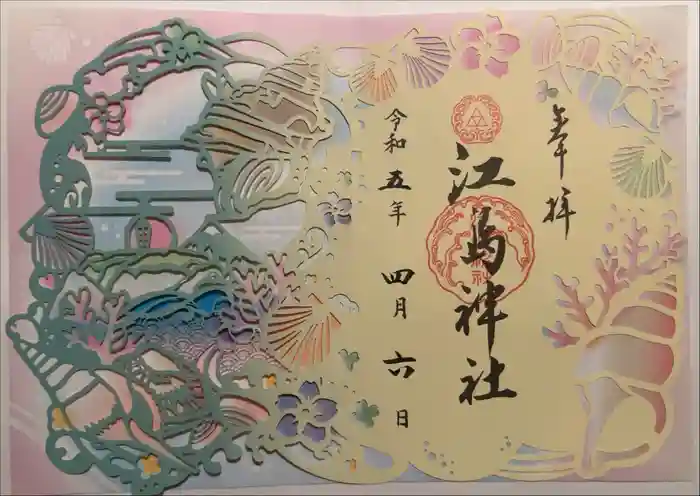 奉拝
江島神社
令和五年四月六日